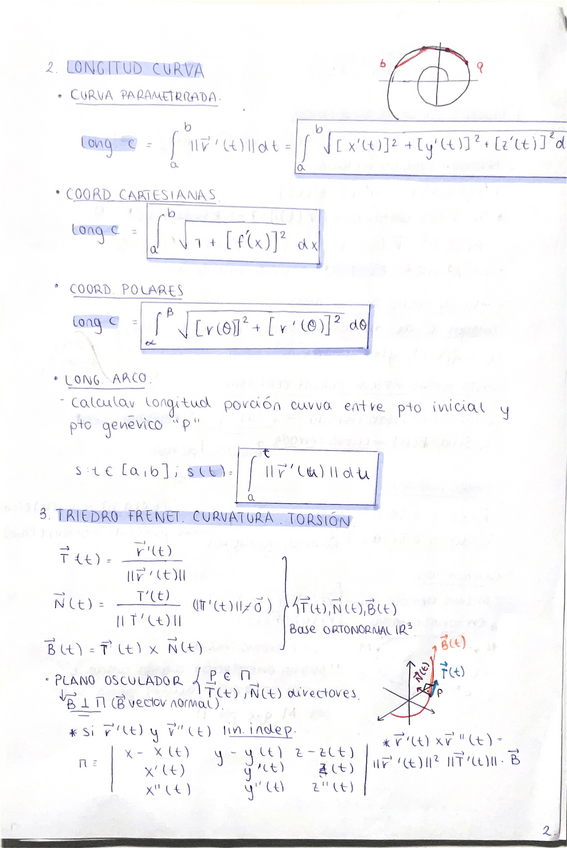 2. LONGITUD CURVA
b
q
• CURVA PARAMETRRADA.
Long c = ∫_a^b ||r⃗'(t)|| dt = ∫_a^b √[x'(t)]² + [y'(t)]² + [z'(t)]² d
• COORD CARTESIANAS
Long c = ∫_a^b √1 + [f'(x)]² dx
• COORD. POLARES
Long c = ∫_α^β √[r(θ)]² + [r'(θ)]² dθ
• LONG. ARCO.
- Calcular longitud porción curva entre pto inicial y
pto genérico "P"
s: t ∈ [a,b] ; s(t) = ∫_a^t ||r⃗'(u)|| du
3. TRIEDRO FRENET. CURVATURA. TORSIÓN
T⃗(t) = r⃗'(t) / ||r⃗'(t)||
N⃗(t) = T'(t) / ||T'(t)|| (||T'(t)|| ≠ 0⃗)
{T⃗(t), N⃗(t), B⃗(t)}
Base ORTONORMAL ℝ³
B⃗(t) = T⃗(t) × N⃗(t)
B⃗(t)
N⃗(t)
T⃗(t)
P
• PLANO OSCULADOR { P ∈ Π
T⃗(t), N⃗(t) directores.
↳ B⃗ ⊥ Π (B⃗ vector normal).
* si r⃗'(t) y r⃗''(t) lin. indep.
Π ≡ | x - x(t) y - y(t) z - z(t) |
| x'(t) y'(t) z(t) |
| x''(t) y''(t) z''(t) |
* r⃗'(t) × r⃗''(t) =
||r⃗'(t)||² ||T⃗'(t)|| · B⃗
2.